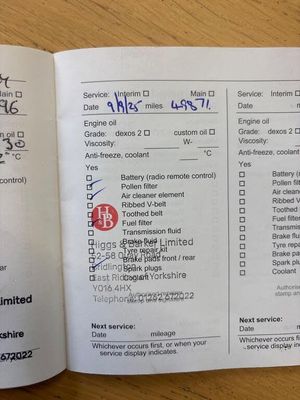 Service: Interim Main
Date 9/9/25 miles 49871.
Engine oil
Grade: dexos 2 custom oil
Viscosity: W-
Anti-freeze, coolant °C
Yes
Battery (radio remote control)
Pollen filter
Air cleaner element
Ribbed V-belt
Toothed belt
Fuel filter
Transmission fluid
Brake fluid
Tyre repair kit
Brake pads front / rear
Spark plugs
Coolant
H&B
Higgs & Barker Limited
52-58 Quay Road
Bridlington
East Riding of Yorkshire
YO16 4HX
Telephone 01262 672022
Next service:
Date mileage
Whichever occurs first, or when your
service display indicates.
ain
96
m oil
30
°C
control)
imited
kshire
672022
Service: Interim
Date
Engine oil
Grade: dexos 2
Viscosity:
Anti-freeze, coolant
Yes
Battery (r
Pollen filt
Air clean
Ribbed V
Toothed
Fuel filte
Transmi
Brake fl
Tyre rep
Brake p
Spark pl
Coolant
Authorise
stamp an
Next service:
Date
Whichever occurs firs
service display in